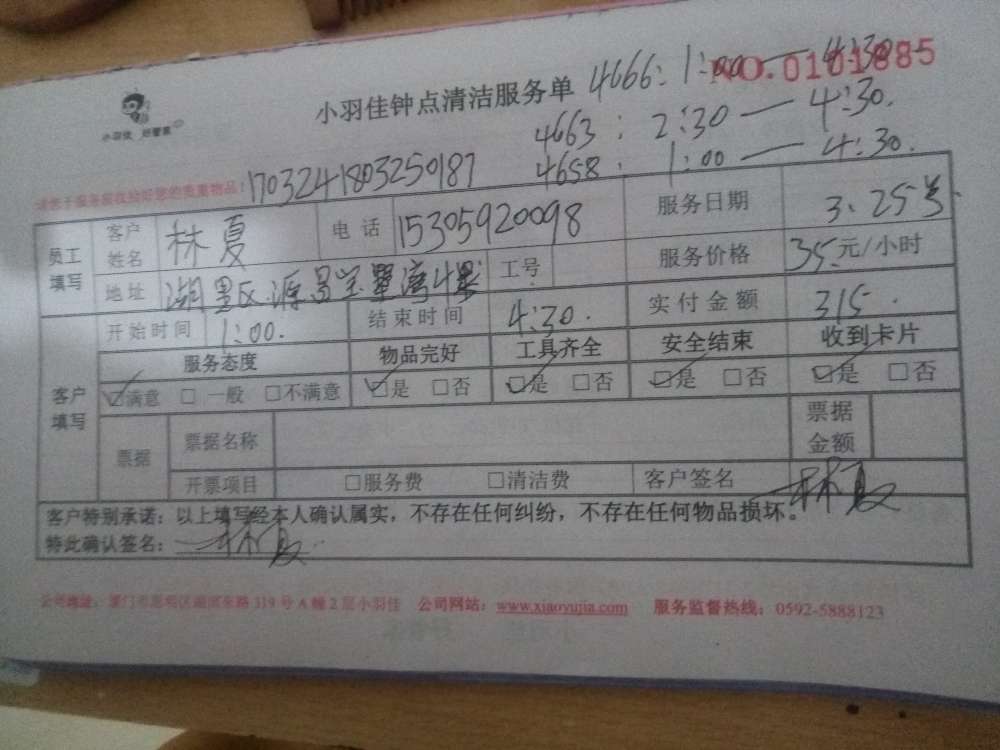 小羽佳钟点清洁服务单
NO.0101885
4666: 1:00 — 4:30
4663 : 2:30 — 4:30.
4658 : 1:00 — 4:30.
小羽佳 好管家
1703241803250187
员工填写 客户姓名 林夏 电话 15305920098 服务日期 3.25号.
地址 湖里区源昌宝墅湾 工号 服务价格 35元/小时
客户填写 开始时间 1:00. 结束时间 4:30. 实付金额 315.
服务态度 物品完好 工具齐全 安全结束 收到卡片
☑满意 □一般 □不满意 ☑是 □否 ☑是 □否 ☑是 □否 ☑是 □否
票据 票据名称 票据金额
开票项目 □服务费 □清洁费 客户签名 林夏
客户特别承诺：以上填写经本人确认属实，不存在任何纠纷，不存在任何物品损坏。
特此确认签名： 林夏
公司地址：厦门市思明区湖滨东路319号A幢2层小羽佳 公司网站：www.xiaoyujia.com 服务监督热线：0592-5888123